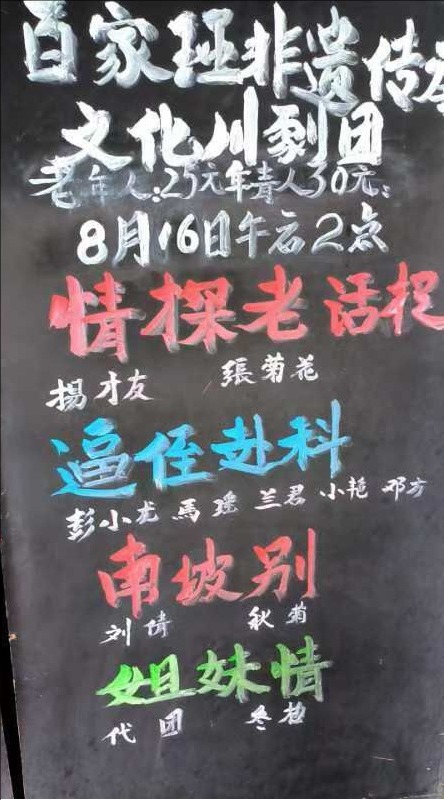 百家班非遗传承
文化川剧团
老年人:25元年青人30元:
8月16日午后2点
情探老活捉
揚才友 張菊花
逼侄赴科
彭小龙 馬瑶 兰君 小艳 邓方
南坡别
刘倩 秋菊
姐妹情
代团 冬梅